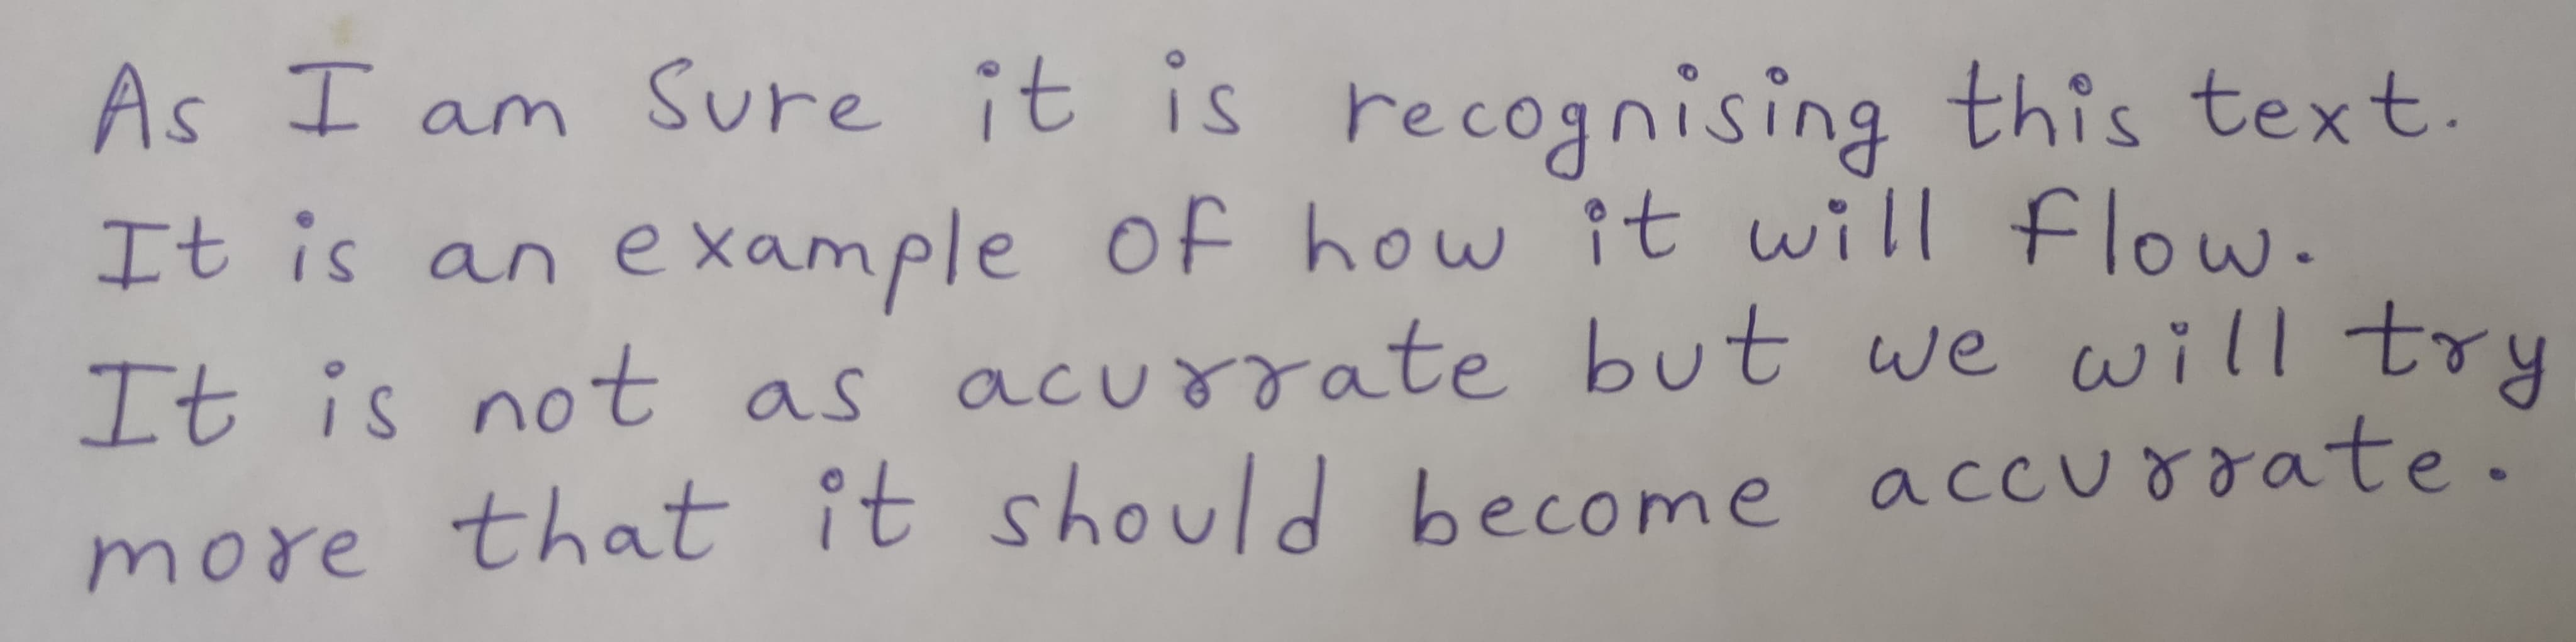 As I am Sure it is recognising this text.
It is an example of how it will flow.
It is not as acurrate but we will try
more that it should become accurrate.